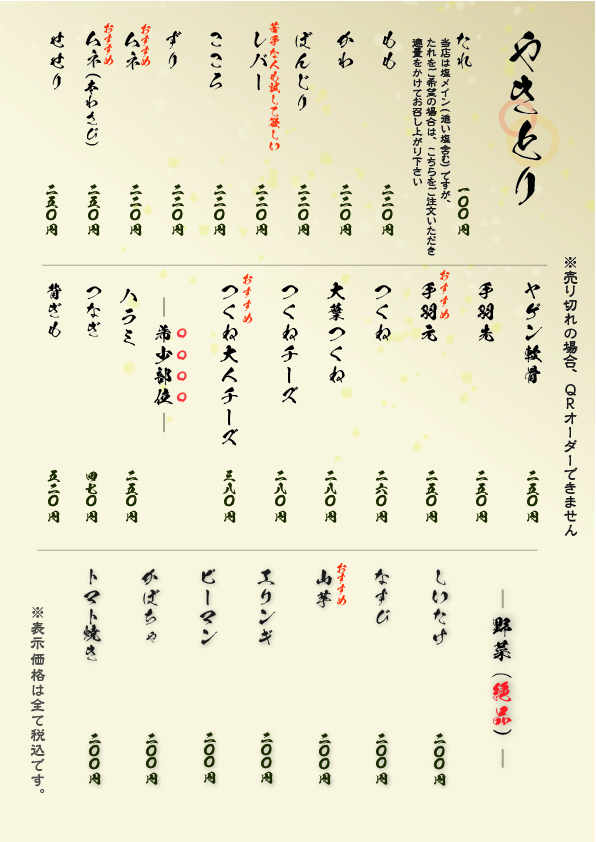 やきとり
たれ
一〇〇円
当店は塩メイン（追い塩含む）ですが、
たれをご希望の場合は、こちらをご注文いただき
適量をかけてお召し上がり下さい
もも
二二〇円
かわ
二二〇円
ぼんじり
二二〇円
苦手な人も試して欲しい
レバー
二二〇円
こころ
二二〇円
ずり
二二〇円
おすすめ
ムネ
二二〇円
おすすめ
ムネ（本わさび）
二五〇円
せせり
二五〇円
※売り切れの場合、QRオーダーできません
ヤゲン軟骨
二五〇円
手羽先
二五〇円
おすすめ
手羽元
二五〇円
つくね
二六〇円
大葉つくね
二八〇円
つくねチーズ
二八〇円
おすすめ
つくね大人チーズ
三八〇円
― 希少部位 ―
ハラミ
二五〇円
つなぎ
四七〇円
背ぎも
五二〇円
― 野菜（絶品） ―
しいたけ
二〇〇円
なすび
二〇〇円
おすすめ
山芋
二〇〇円
エリンギ
二〇〇円
ピーマン
二〇〇円
かぼちゃ
二〇〇円
トマト焼き
二〇〇円
※表示価格は全て税込です。